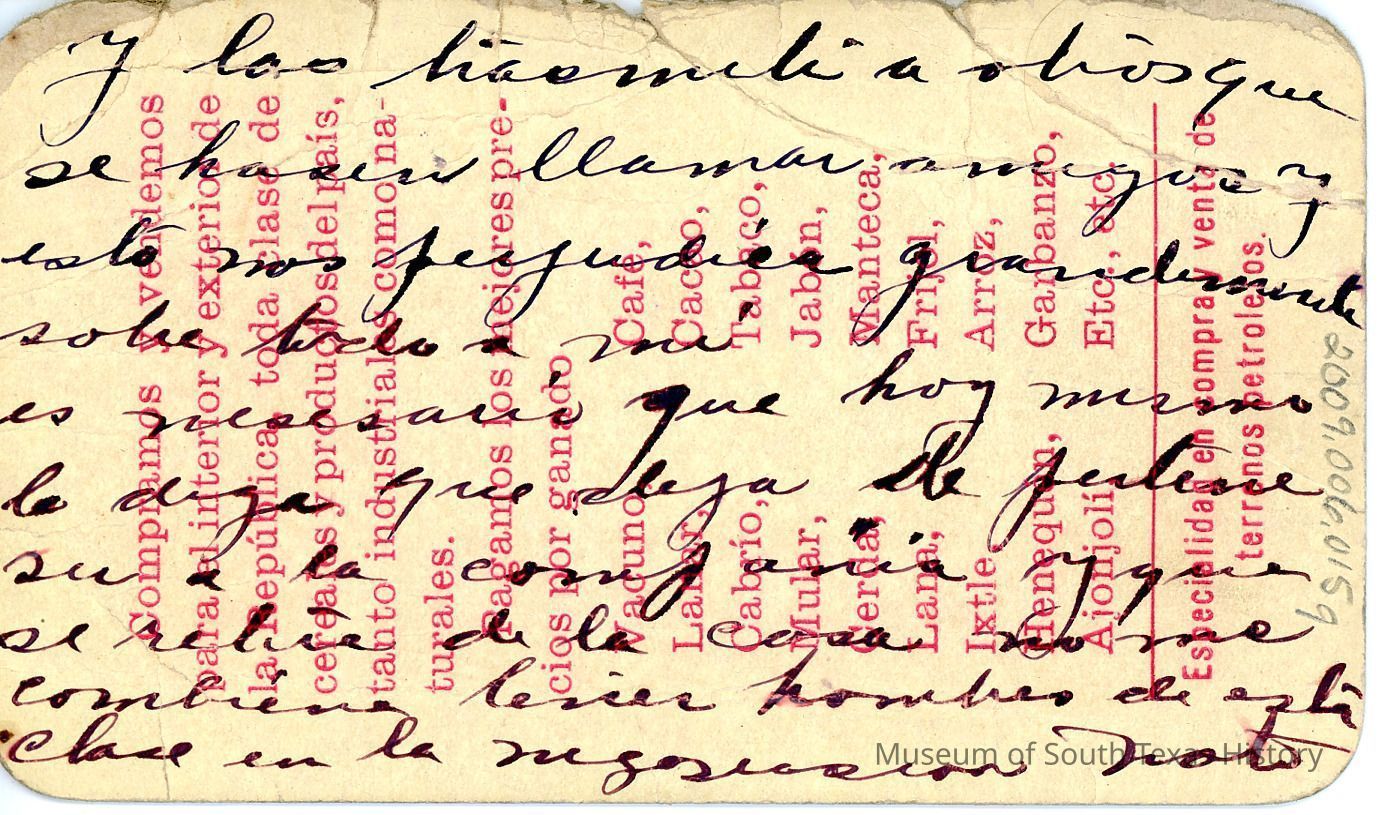 Y las trasmiti a otros que
se hasen llamar amigos y
esto nos perjudica grandemente
sobre todo a mi
es nesesario que hoy mismo
le diga que deja de pertene
ser a la compañia y que
se retire de la casa no me
combiene tener hombres de esta
clase en la negosiasion Nota
Compramos y vendemos
para el interior y exterior de
la República, toda clase de
cereales y productos del país,
tanto industriales como na-
turales.
Pagamos los mejores pre-
cios por ganado
Vacuno, Café,
Lanar, Cacao,
Cabrío, Tabaco,
Mular, Jabón,
Cerda, Manteca,
Lana, Frijol,
Ixtle, Arroz,
Henequén, Garbanzo,
Ajonjolí, Etc., etc.
Especialidad en compra y venta de
terrenos petroleros.
2009.006.015q
Museum of South Texas History